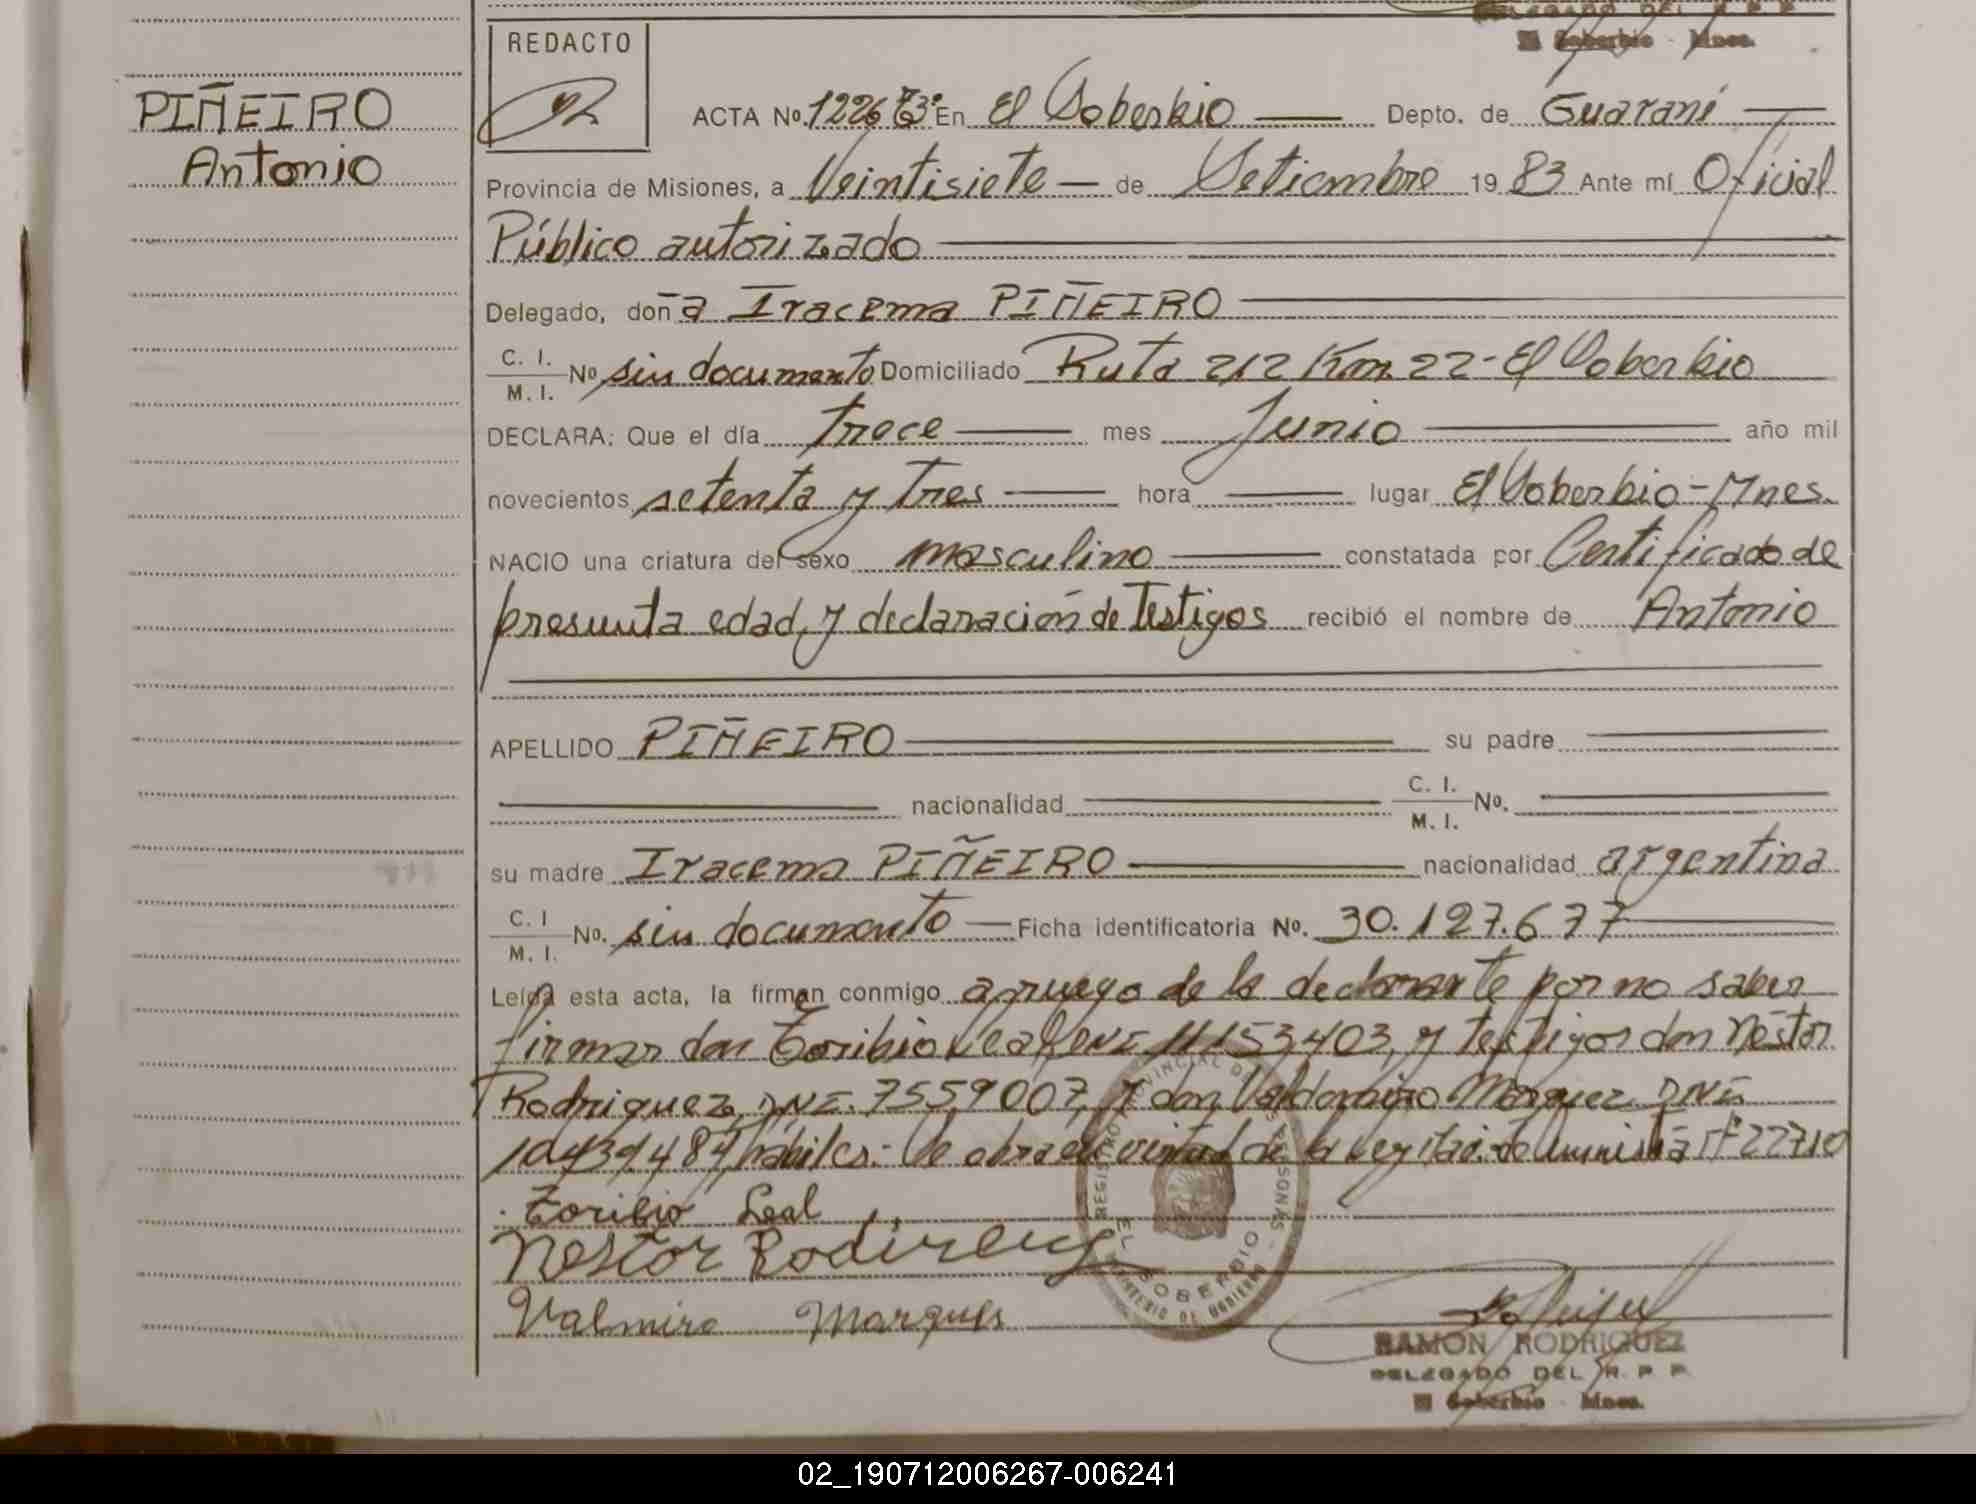 DELEGADO DEL R. P. P.
El Soberbio - Mnes.
REDACTO
PIÑEIRO
Antonio
ACTA No. En El Soberbio Depto. de Guaraní
Provincia de Misiones, a Veintisiete de Setiembre 19 83 Ante mí Oficial
Público autorizado
Delegado, doña Iracema PIÑEIRO
C. I. M. I. No sin documento Domiciliado Ruta 212 Km. 22 - El Soberbio
DECLARA: Que el día trece mes Junio año mil
novecientos setenta y tres hora lugar El Soberbio - Mnes.
NACIO una criatura del sexo masculino constatada por Certificado de
presunta edad, y declaración de Testigos recibió el nombre de Antonio
APELLIDO PIÑEIRO su padre
nacionalidad C. I. M. I. No.
su madre Iracema PIÑEIRO nacionalidad argentina
C. I M. I. No. sin documento Ficha identificatoria No. 30.127.677
Leída esta acta, la firman conmigo a ruego de la declarante por no saber
firmar don Toribio Leal DNI 11153403, y testigos don Néstor
Rodriguez, DNI. 7559007, y don Valdomiro Marquez DNI
hábiles.- Se obra en virtud de la ley de Amnistía nº 22710
Toribio Leal
Nestor
Valmiro Marques
REGISTRO PROVINCIAL DE LAS PERSONAS
EL SOBERBIO
MINISTERIO DE GOBIERNO
RAMON RODRIGUEZ
DELEGADO DEL R. P. P.
El Soberbio - Mnes.
02_190712006267-006241